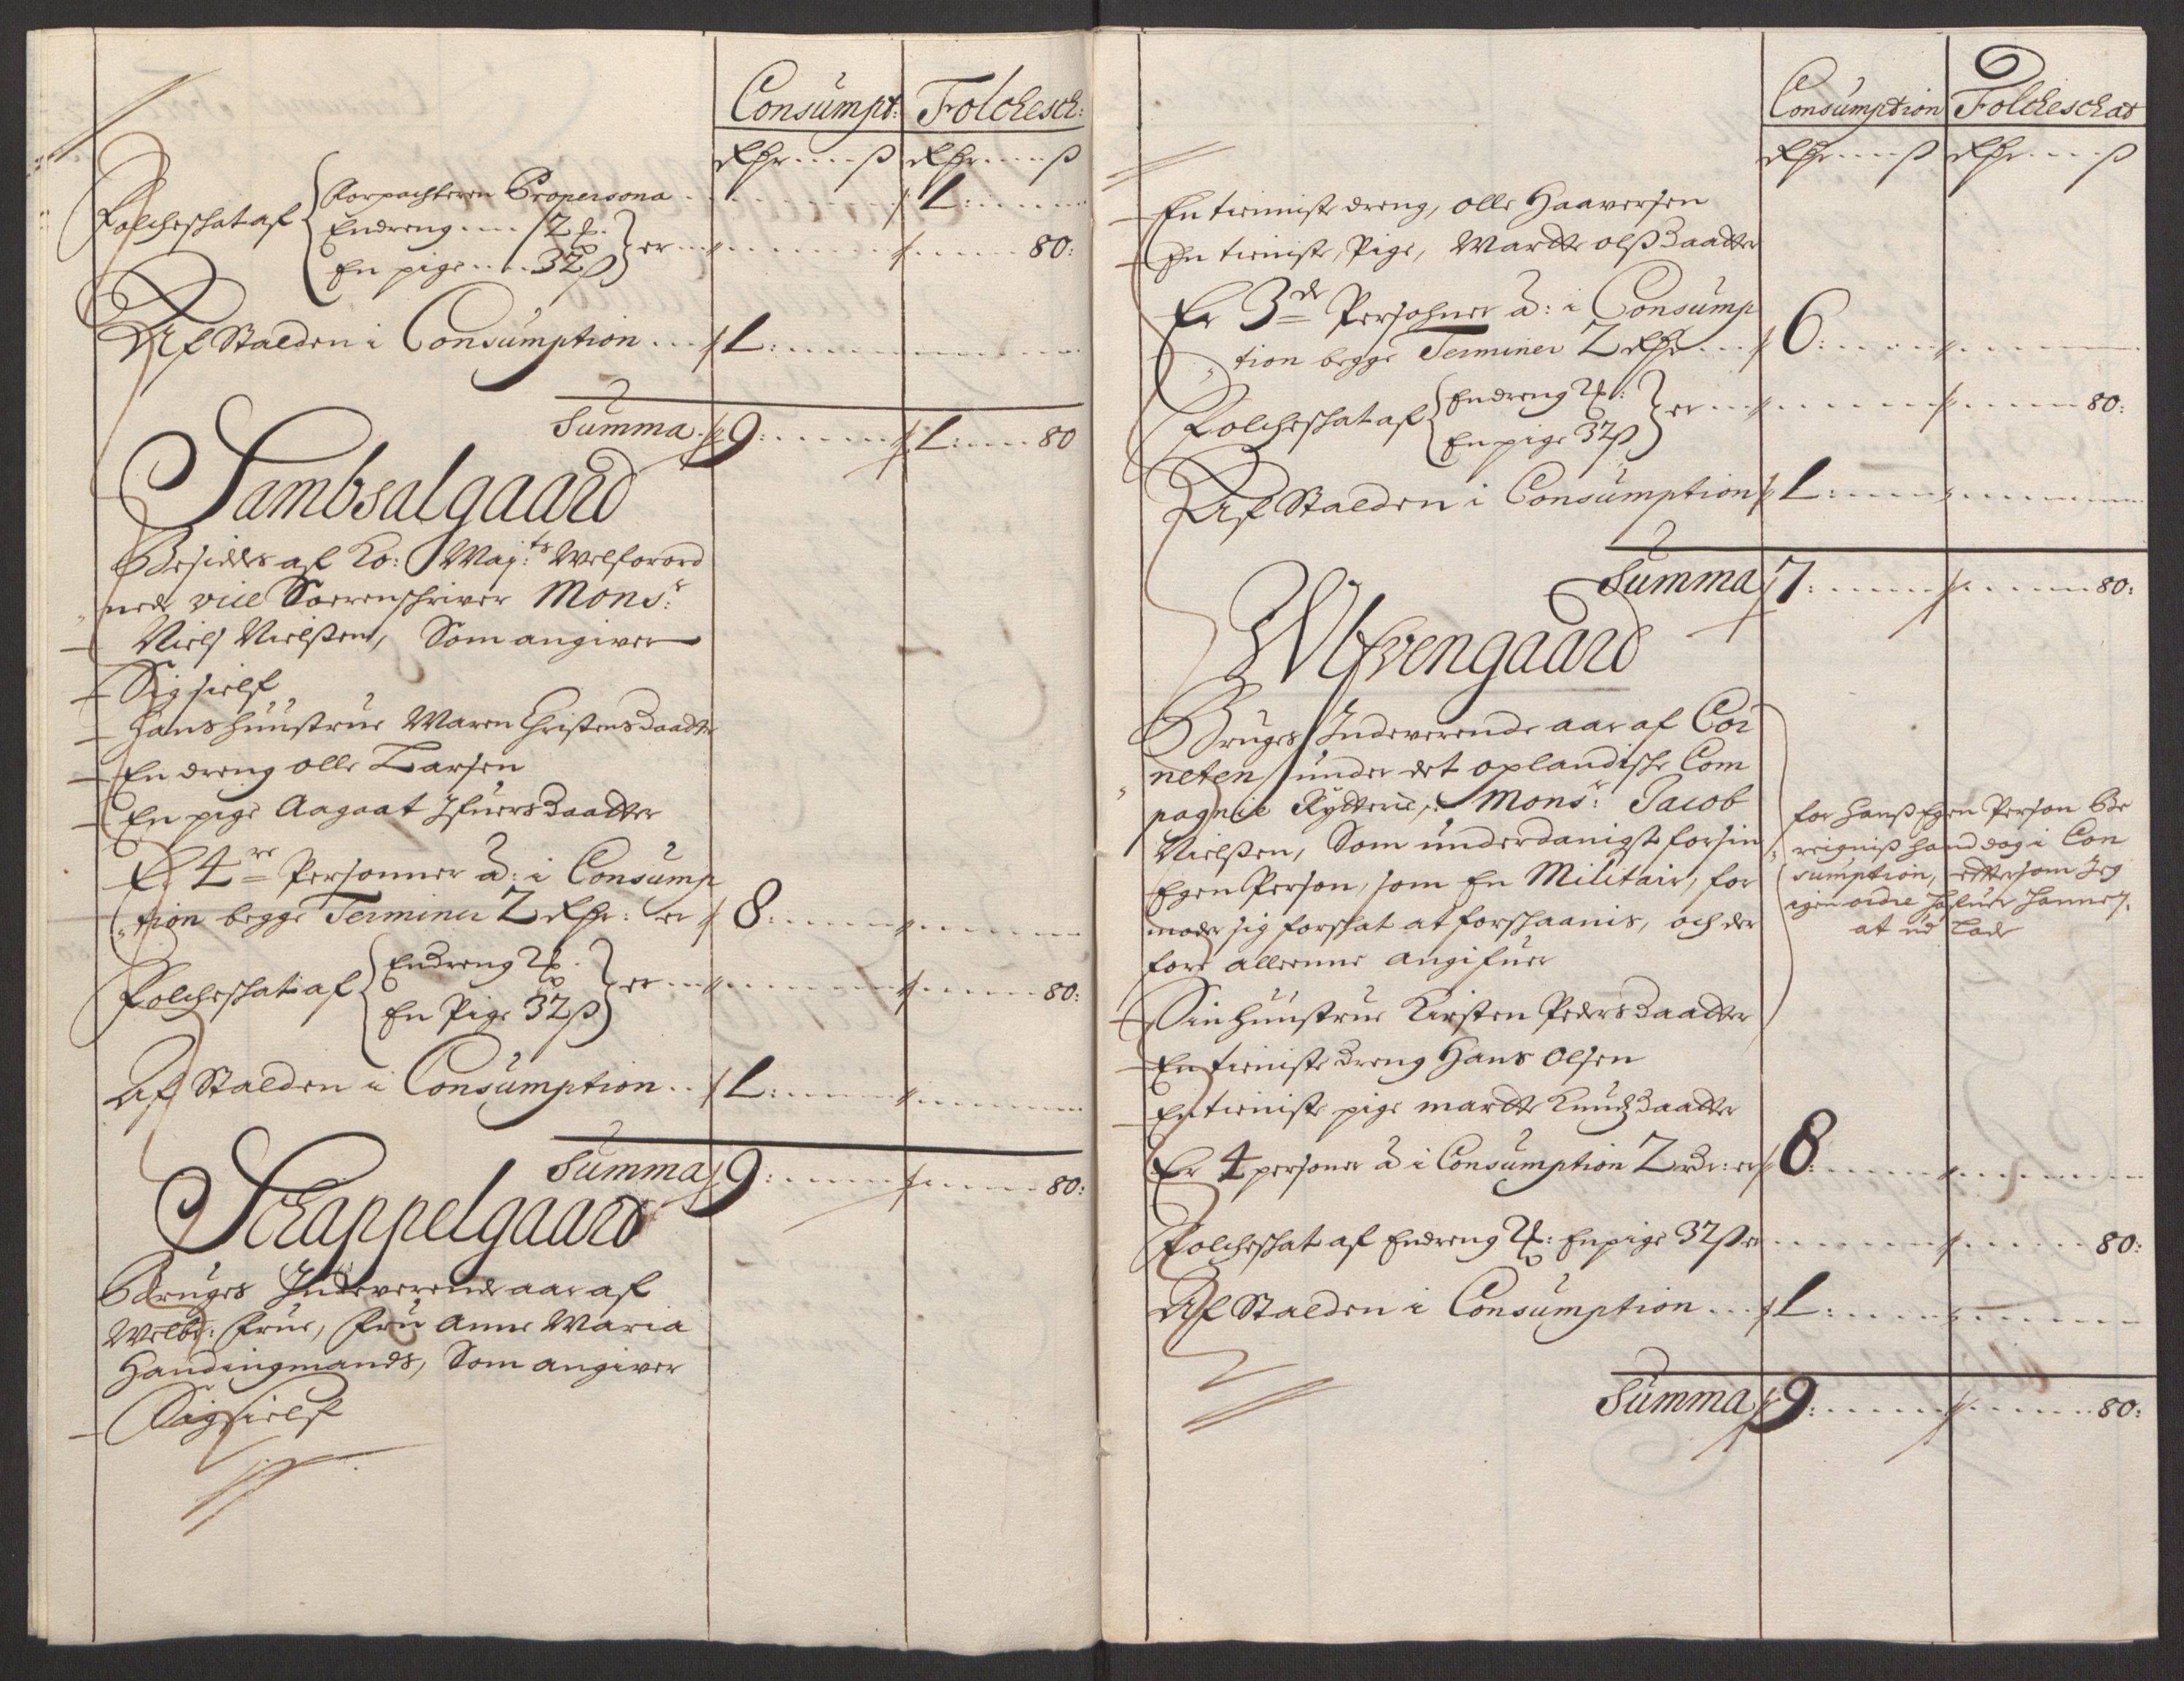 Consumpt: Folchesch:
Rdhr ß Rdhr ß
Folcheskat af
Forpachteren Propersona 1:
En dreng
En pige 32 ß er 80:
Af Stalden i Consumption 1:
Summa 9: 1: 80
Sambsalgaard
Besiddes af Ko: Mayts: Welforord
nede vice Soerenschriver Monsr:
Niels Nielssen, Som angiver
Sig sielf
Hans huustrue Maren Christensdaatter
En dreng olle Larsen
En pige Aagaat Ifuersdaatter
Er 4re Personner a: i Consump
tion begge Terminer 2 Rdhr: er 8:
Folcheskat af
En dreng
En Pige 32 ß er 80:
Af Stalden i Consumption 1:
Summa 9: 80:
Schappelgaard
Bruges Indeverende aar af
Welb: Frue, Fru Anne Maria
Handingmands, Som angiver
Sig sielf
Consumption Folcheschat
Rdhr ß Rdhr ß
En tienniste dreng, olle Haaversen
En tieniste Pige, Marte olsdaatter
Er 3de Persohner a: i Consump
tion begge Terminer 2 Rdhr 6:
Folcheskat af
En dreng
En pige 32 ß er 80:
Af Stalden i Consumption 1:
Summa 7: 80:
Ulfvengaard
Bruges Indeverende aar af Cor
neten under det oplandishe Com
pagnie Rytterie, Monsr: Jacob
Nielssen, Som underdanigst for sin
Egen Person, som En Militair, for
moder sig forskat at forskaanis, och der
fore alleenne angifuer
for hanss Egen Person Be
reigniss hand dog i Con
sumption, etter som Jeg
igen ordre hafuer hannem
at ud Lade
Sin huustrue Kirsten Pedersdaatter
En tieniste dreng Hans Olsen
En tieniste pige marte Knudsdaatter
Er 4 personer a i Consumption 2 Rdr: er 8:
Folcheskat af En dreng En pige 32 ß er 80:
Af Stalden i Consumption 1:
Summa 9: 80: